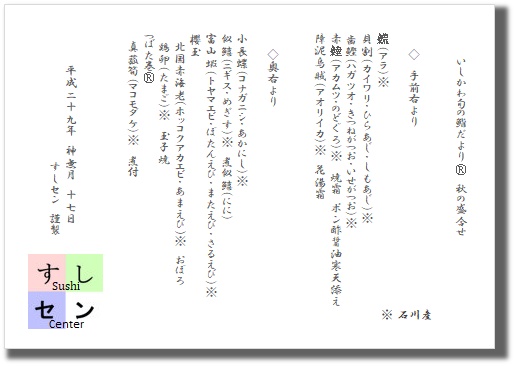 いしかわ旬の鮨だより® 秋の盛合せ
◇ 手前右より
鯇(アラ)※
貝割(カイワリ・ひらあじ・しもあじ)※
歯鰹(ハガツオ・きつねがつお・いせがつお)※
赤鯥(アカムツ・のどぐろ)※ 焼霜 ポン酢醤油寒天添え
障泥烏賊(アオリイカ)※ 花湯霜
◇奥右より
小長螺(コナガニシ・あかにし)※
似鱚(ニギス・めぎす)※ 煮似鱚(にに)
富山蝦(トヤマエビ・ぼたんえび・またえび・さるえび)※
櫻玉
北国赤海老(ホッコクアカエビ・あまえび)※ おぼろ
鶏卵(たまご)※ 玉子焼
つばた巻®
真菰筍(マコモタケ)※ 煮付
平成二十九年 神無月 十七日
すしセン 謹製
※ 石川産
すし
Sushi
セン
Center